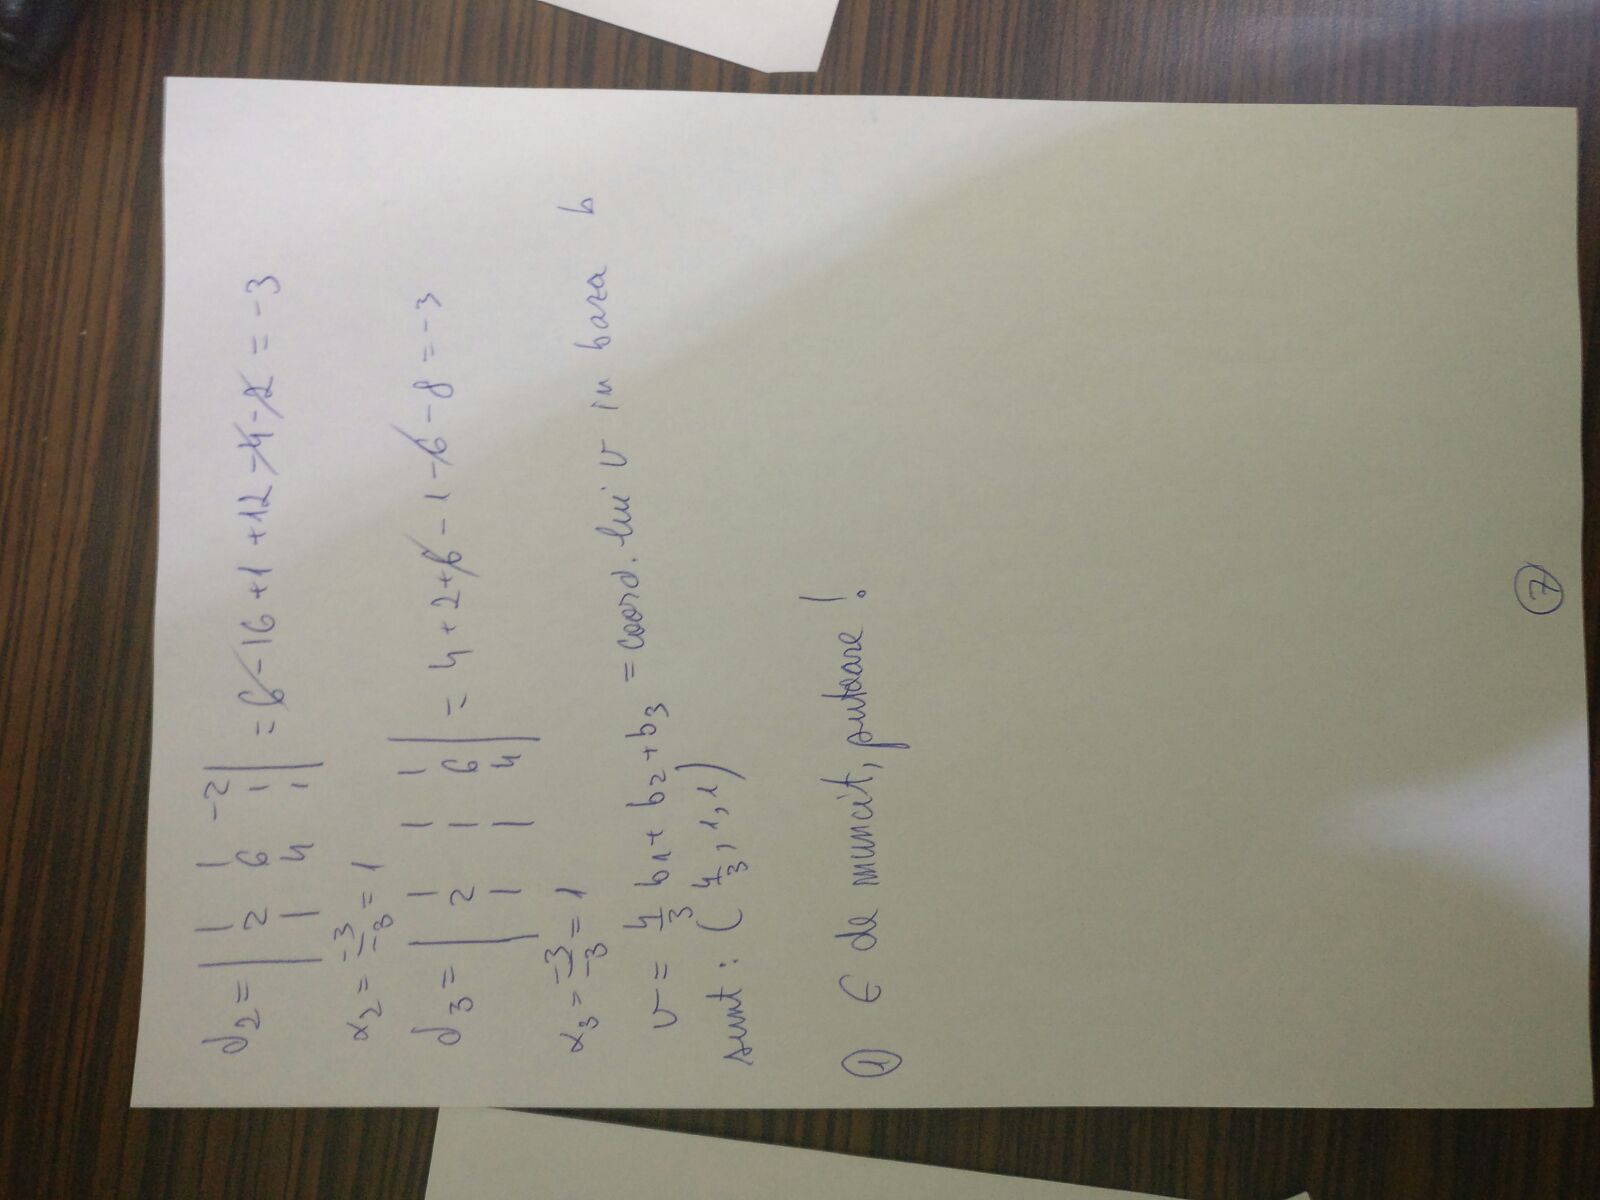 d₂ = | 1 1 -2 |
| 2 6 1 | = 6 - 16 + 1 + 12 - 4 - 2 = -3
| 1 4 1 |
α₂ = -3/-3 = 1
d₃ = | 1 1 1 |
| 2 1 6 | = 4 + 2 + 6 - 1 - 6 - 8 = -3
| 1 1 4 |
α₃ = -3/-3 = 1
v = 4/3 b₁ + b₂ + b₃ = coord. lui v in baza b
sunt : ( 4/3, 1, 1 )
① E de muncit, putoare !
⑦